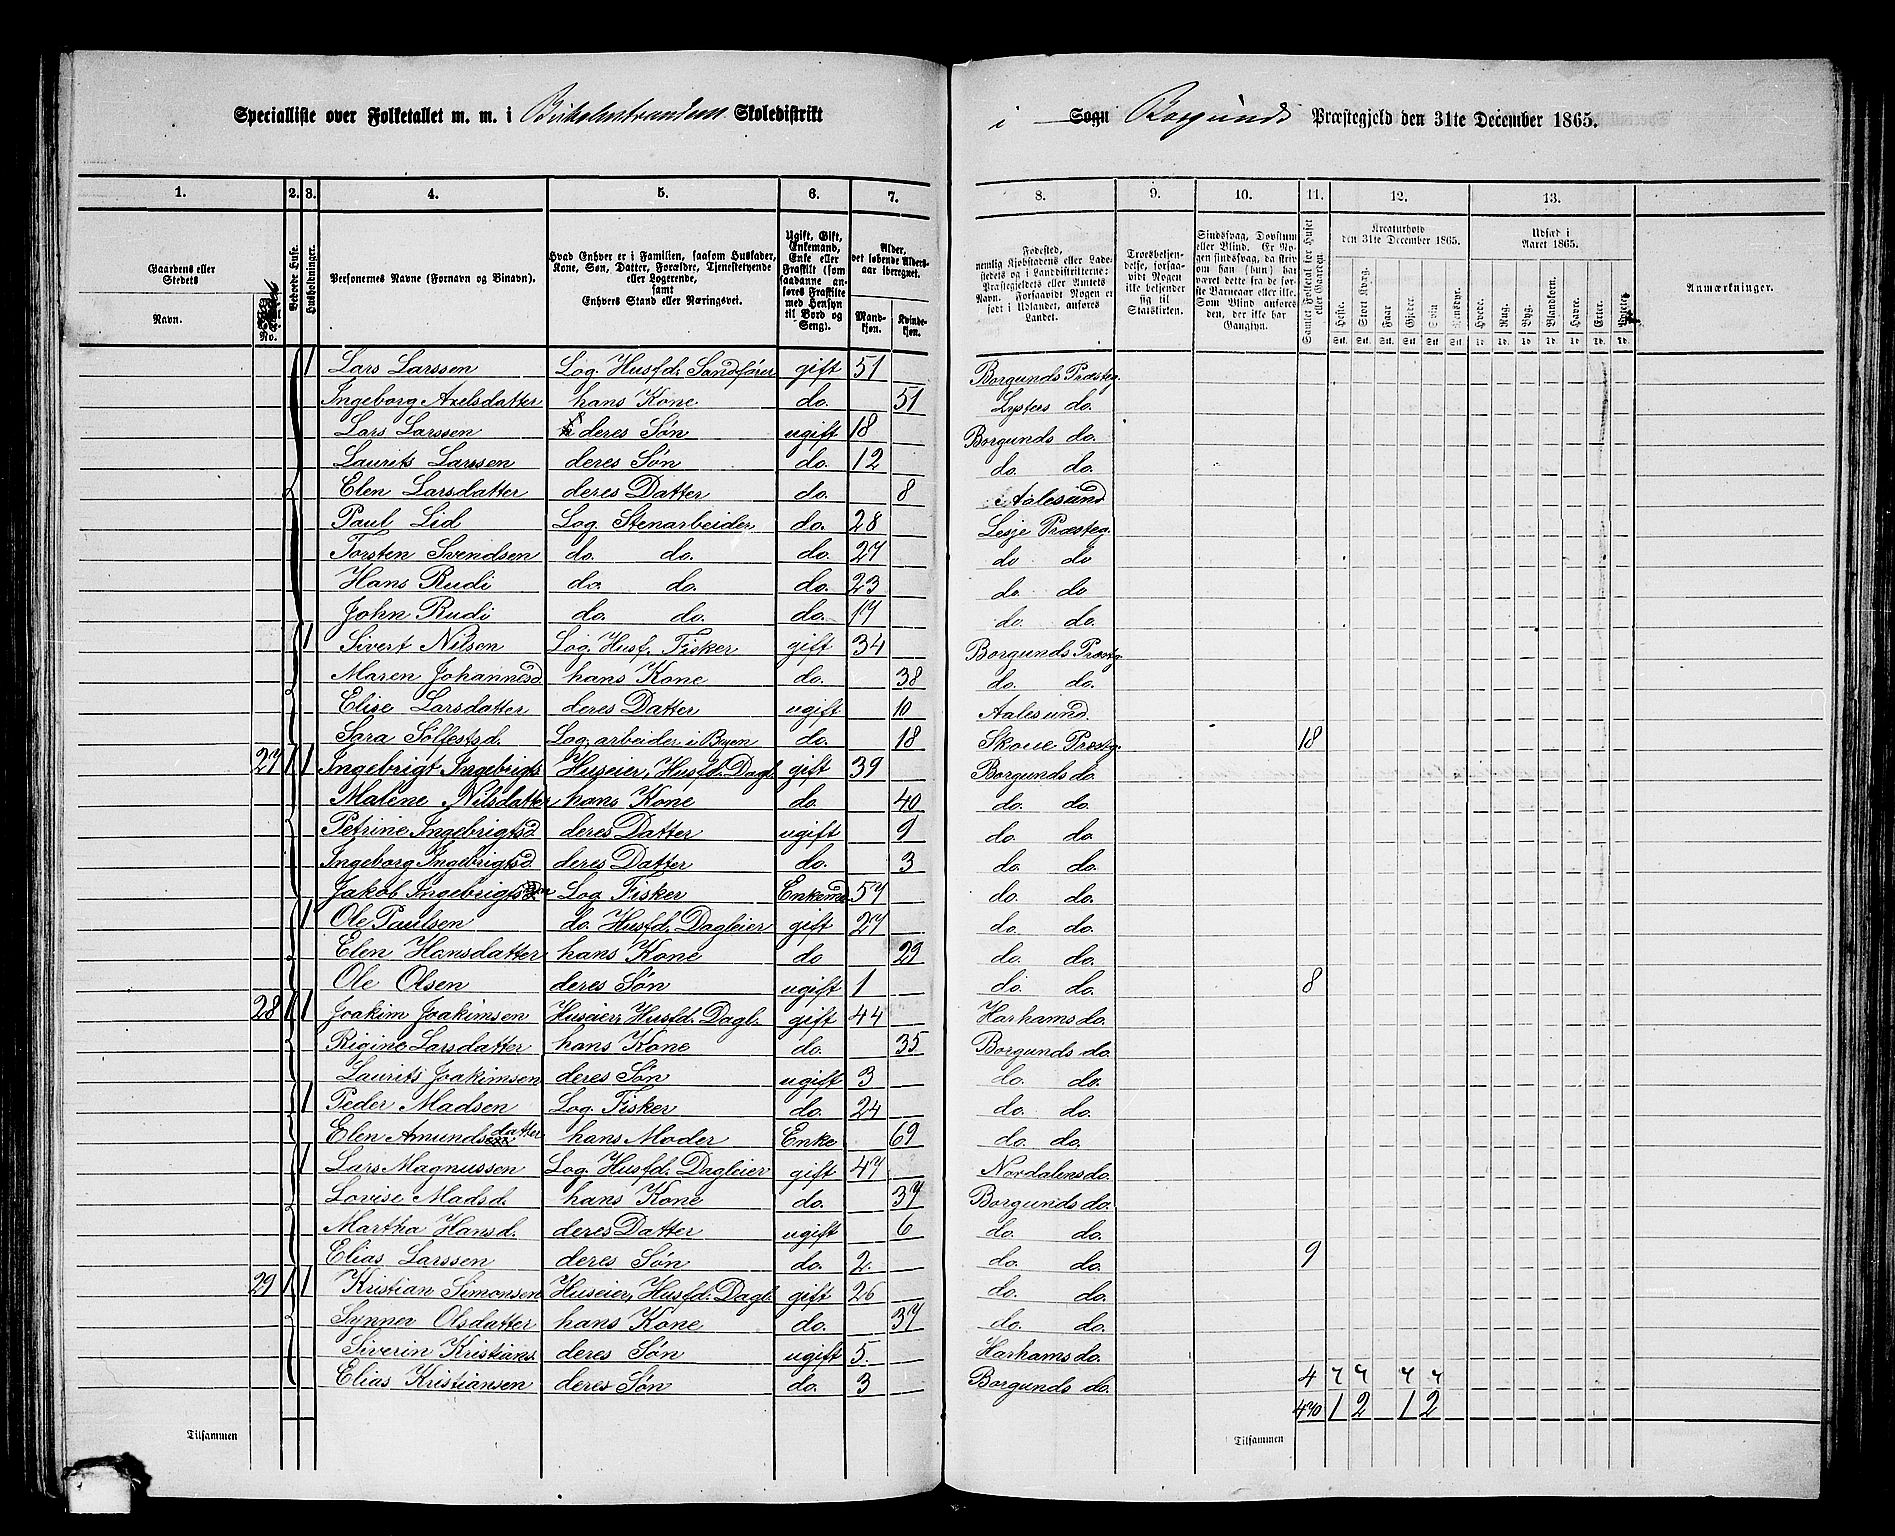 Specialliste over Folketallet m. m. i Skoledistrikt i Sogn Borgunds Præstegjeld den 31te December 1865.
1. 2. 3. 4. 5. 6. 7. 8. 9. 10. 11. 12. 13.
Gaardens eller Stedets Navn. No.
Beboede Huse.
Husholdninger.
Personernes Navne (Fornavn og Binavn).
Hvad Enhver er i Familien, saasom Husfader, Kone, Søn, Datter, Forældre, Tjenestetyende eller Logerende, samt Enhvers Stand eller Næringsvei.
Ugift, Gift, Enkemand, Enke eller Fraskilt (som saadanne anføres Fraskilte med Hensyn til Bord og Seng).
Alder, det løbende Aldersaar iberegnet.
Mandkjøn. Kvindekjøn.
Fødested, nemlig Kjøbstadens eller Ladestedets og i Landdistrikterne: Præstegjeldets eller Amtets Navn. Forsaavidt Nogen er født i Udlandet, anføres Landet.
Troesbekjendelse, forsaavidt Nogen ikke bekjender sig til Statskirken.
Sindssvag, Døvstum eller Blind. Er Nogen sindssvag, da skrives om han (hun) har været dette fra de første Barneaar eller ikke. Som Blind anføres den, der ikke har Gangsyn.
Samlet Folketal for Huset eller Gaarden.
Kreaturhold den 31te December 1865.
Heste. Stort Kvæg. Faar. Gjeder. Svin. Rensdyr.
Udsæd i Aaret 1865.
Hvede. Rug. Byg. Blandkorn. Havre. Erter. Poteter.
Anmærkninger.
1 Lars Larssen Log. Husfd. Sandfører gift 51 Borgunds Præsteg.
Ingeborg Axelsdatter hans Kone do. 51 Lysters do.
Lars Larssen deres Søn ugift 18 Borgunds do.
Laurits Larssen deres Søn do. 12 do. do.
Elen Larsdatter deres Datter do. 8 Aalesund
Paul Lid Log. Stenarbeider do. 28 Lesje Præsteg.
Torsten Svendsen do. do. do. 27 do do
Hans Rudi do. do. do. 23 do. do
John Rudi do. do. do. 17 do. do.
1 Sivert Nilsen Log. Husf. Fisker gift 34 Borgunds Præstg.
Maren Johannesd. hans Kone do. 38 do. do.
Elise Larsdatter deres Datter ugift 10 Aalesund.
Sara Sølfestsd. Log. arbeider i Byen do. 18 Skoue Præstg. 18
27 1 1 Ingebrigt Ingebrigts Huseier, Husfd. Dagl. gift 39 Borgunds do.
Malene Nilsdatter hans Kone do. 40 do. do.
Petrine Ingebrigtsd. deres Datter ugift 9 do. do.
Ingeborg Ingebrigtsd. deres Datter do. 3 do. do.
Jakob Ingebrigtssen Log. Fisker Enkemd. 57 do. do.
1 Ole Paulsen do. Husfd. Dagleier gift 27 do. do.
Elen Hansdatter hans Kone do 29 do. do.
Ole Olsen deres Søn ugift 1 do. do. 8
28 1 1 Joakim Joakimsen Huseier, Husfd. Dagl. gift 44 Harhams do.
Rigine Larsdatter hans Kone do. 35 Borgunds do.
Laurits Joakimsen deres Søn ugift 3 do. do.
1 Peder Madsen Log. Fisker do. 24 do. do.
Elen Amundsdatter hans Moder Enke 69 do. do.
1 Lars Magnussen Log. Husfd. Dagleier gift 47 Nordalens do.
Lovise Madsd. hans Kone do. 37 Borgunds do.
Martha Hansd. deres Datter ugift 6 do. do.
Elias Larssen deres Søn do. 2. do. do. 9
29 1 1 Kristian Simonsen Huseier, Husfd. Dagl. gift 26 do. do.
Synnev Olsdatter hans Kone do. 37 do. do.
Siverin Kristians. deres Søn ugift 5. Harhams do.
Elias Kristiansen deres Søn do. 3 Borgunds do. 4
470 1 2 1 2
Tilsammen Tilsammen